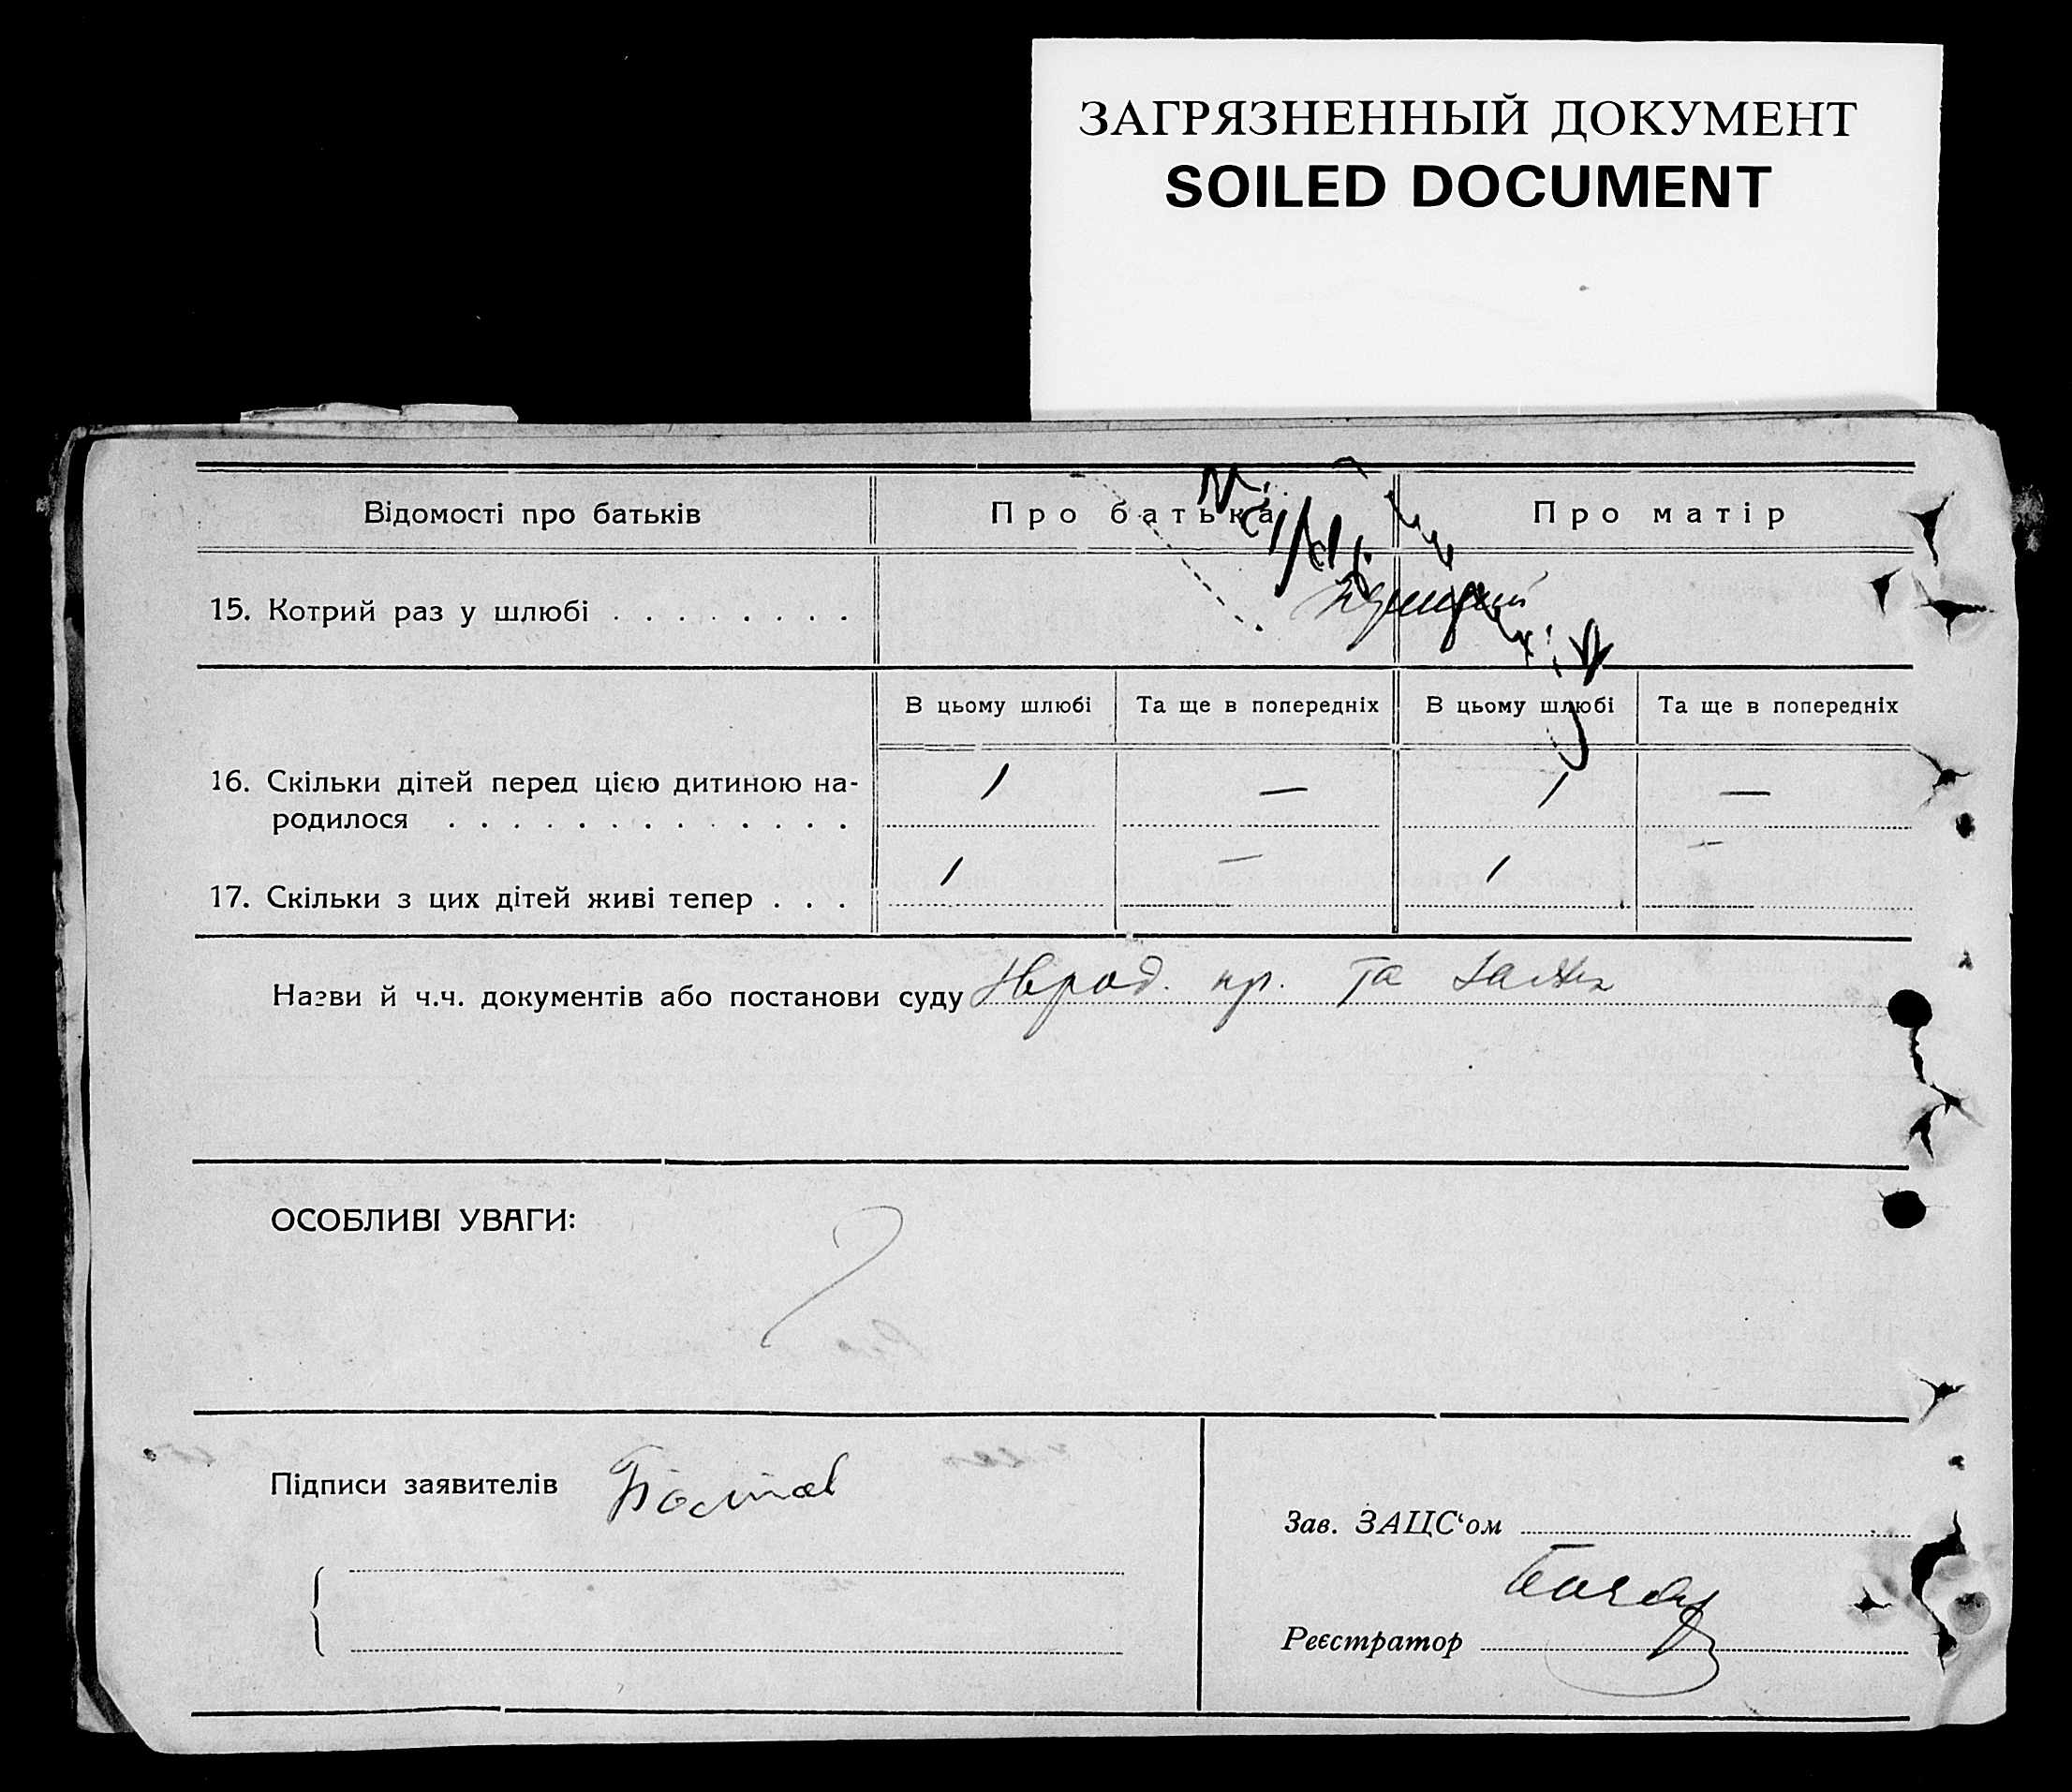 ЗАГРЯЗНЕННЫЙ ДОКУМЕНТ
SOILED DOCUMENT
Відомості про батьків Про батька Про матір
15. Котрий раз у шлюбі . . . . . . . .
В цьому шлюбі Та ще в попередніх В цьому шлюбі Та ще в попередніх
16. Скільки дітей перед цією дитиною на-
родилося . . . . . . . . . . . . . 1 — 1 —
17. Скільки з цих дітей живі тепер . . . 1 — 1 —
Назви й ч.ч. документів або постанови суду та
ОСОБЛИВІ УВАГИ:
Підписи заявителів
Зав. ЗАЦС‘ом
Реєстратор